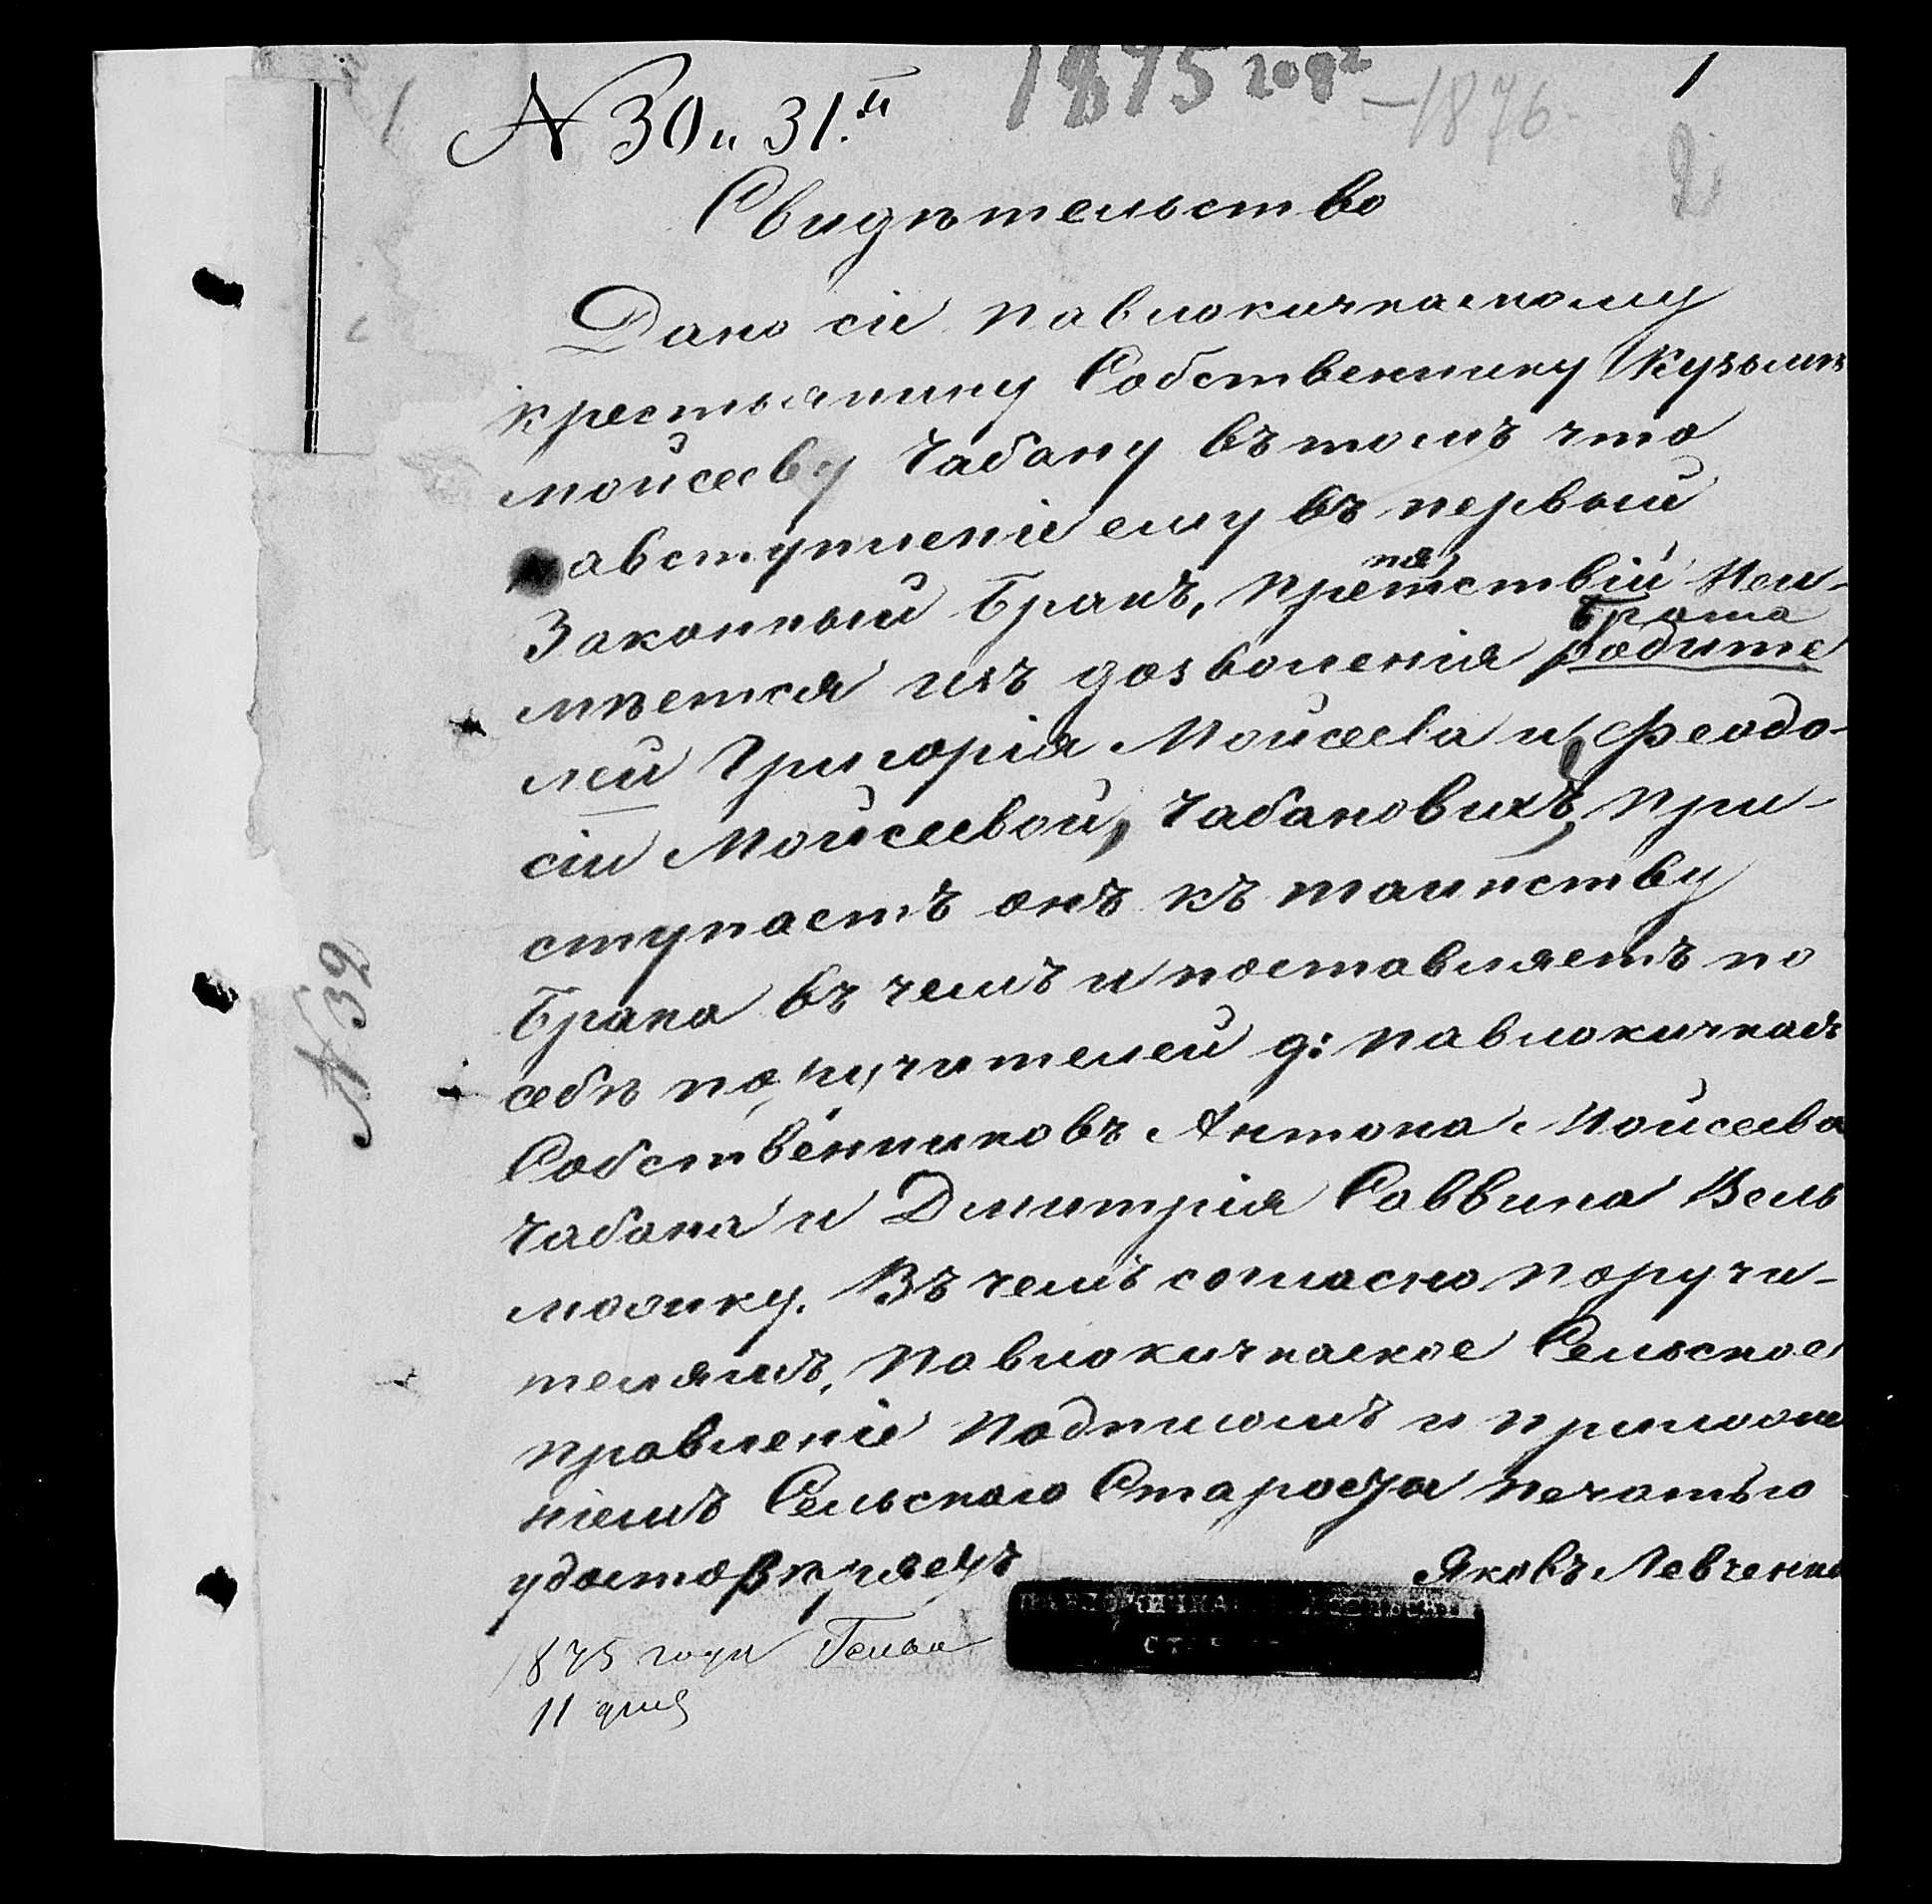 1875 года
-1876-
1
2
№ 30 и 31.й
Свидѣтельство
Дано сіе павлокичкаскому
крестьянину Собственнику Кузьмѣ
мойсееву Чабану въ томъ что
навступленіе ему въ первый
Законный Бракъ, препятствій Неи-
мѣется изъ дозволенія родите
брата
лей Григорія Мойсеева и Феодо-
сіи Мойсеевой, Чабановихъ, при-
ступаетъ онъ къ таинству
Брака въ чемъ и поставляетъ по
себѣ поручителей д: павлокичкасъ
Собственниковъ Антона Мойсеева
Чабана и Дмитрія Саввина Вель
можку. Въ чемъ согласно поручи-
телямъ, павлокичкаское Сельское
правленіе подписомъ и приложе
ніемъ Сельского Староста печатью
удостовѣряетъ
Яковъ Левченко
1875 года Генва
11 дня
№ 32